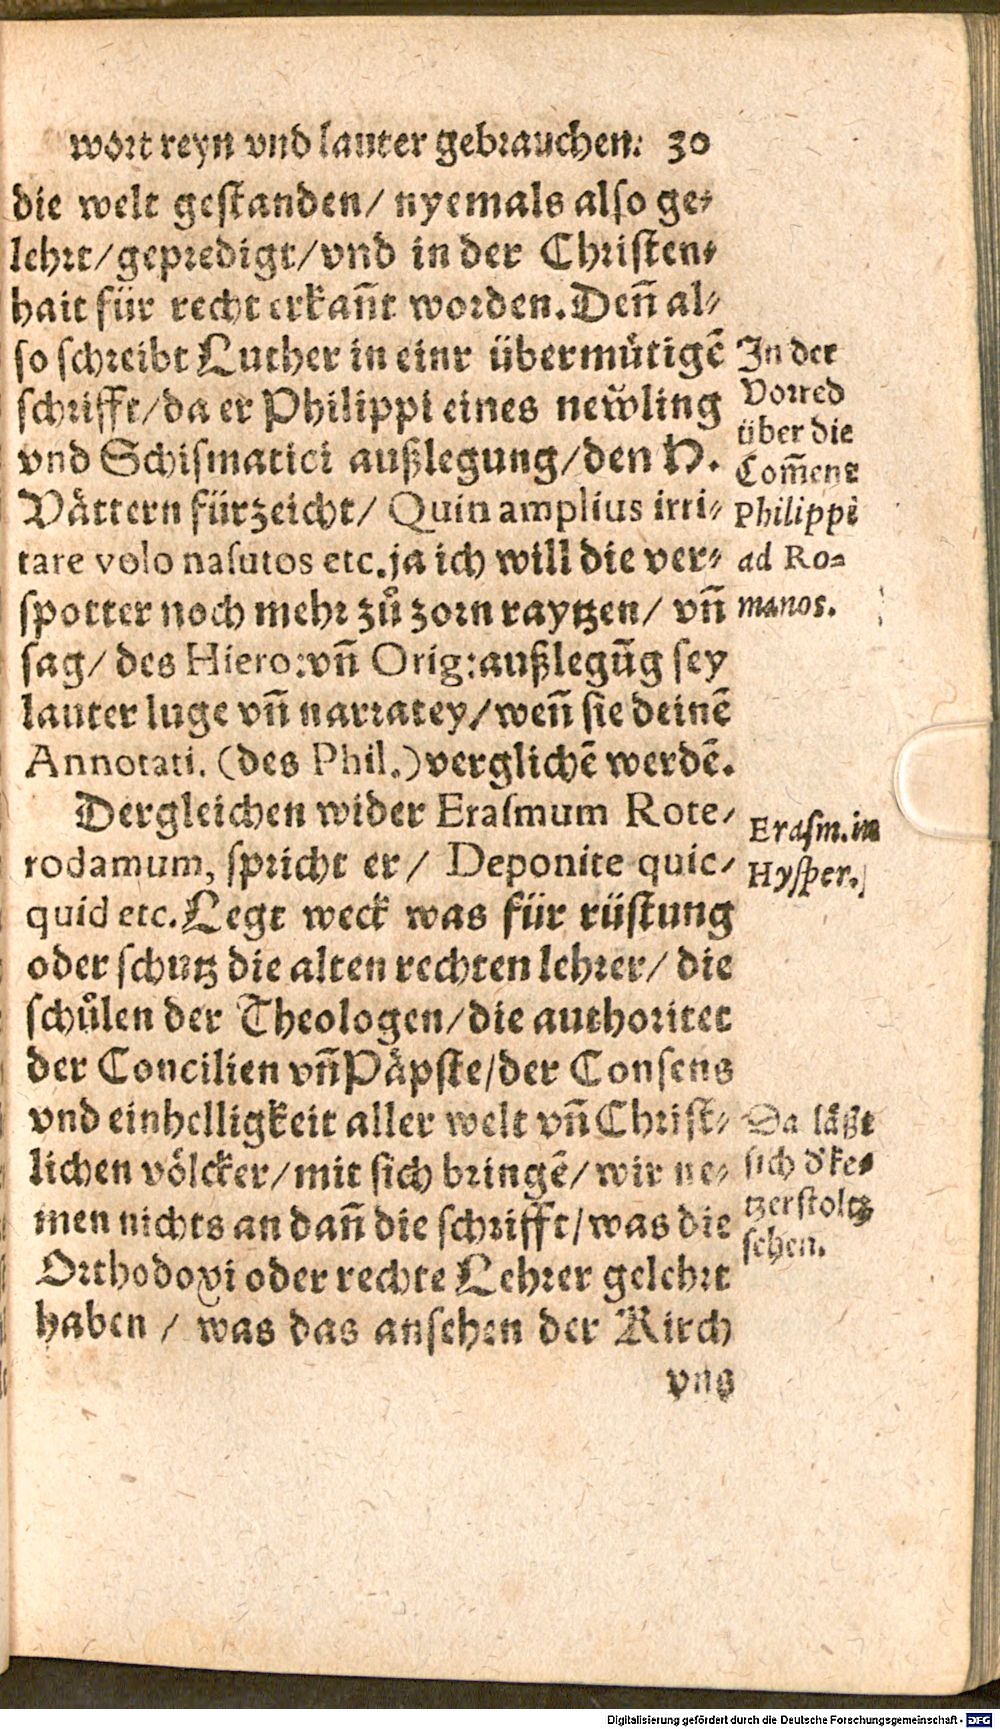 wort reyn vnd lauter gebrauchen. 30
die welt gestanden/ nyemals also ge-
lehrt/gepredigt/vnd in der Christen-
hait für recht erkañt worden. Deñ al-
so schreibt Luther in einr übermütigẽ
schrifft/da er Philippi eines newling
vnd Schismatici außlegung/den H.
Vättern fürzeicht/ Quin amplius irri-
tare volo nasutos etc. ja ich will die ver-
spotter noch mehr zů zorn raytzen/ vñ
sag/ des Hiero: vñ Orig: außlegũg sey
lauter luge vñ narratey/weñ sie deinẽ
Annotati. (des Phil.) verglichẽ werdẽ.
Dergleichen wider Erasmum Rote-
rodamum, spricht er/ Deponite quic-
quid etc. Legt weck was für rüstung
oder schutz die alten rechten lehrer/ die
schůlen der Theologen/die authoritet
der Concilien vñ Päpste/der Consens
vnd einhelligkeit aller welt vñ Christ-
lichen völcker/mit sich bringẽ/ wir ne-
men nichts an dañ die schrifft/was die
Orthodoxi oder rechte Lehrer gelehrt
haben / was das ansehen der Kirch
vns
In der
Vorred
über die
Com̃ent
Philippi
ad Ro-
manos.
Erasm. in
Hysper.
Da läßt
sich d' ke-
tzer stoltz
sehen.
Digitalisierung gefördert durch die Deutsche Forschungsgemeinschaft - DFG